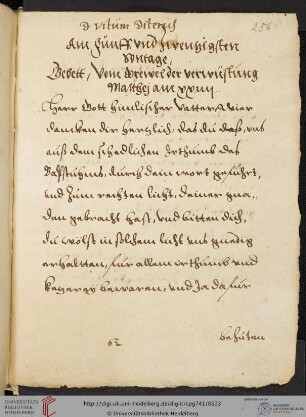 D. Vitum Diterich
256
Am Fünff vnd zwentzigsten
Sontage,
Gebett, Vom Greiwel der verwüstung
Matthej am xxiiij
Herr Gott himlischer Vatter, wier
dancken dir hertzlich, das du daß, vns
auß dem schedlichen Irthumb des
Bapstuhms, durch dein wort gefuhrt,
vnd zum rechten licht, deiner gna,,
den gebracht hast, vnd bitten dich,
du wölst in solchem licht vns gnedig
erhaltten, fur allem irthumb vnd
ketzerey bewaren, vnd Ia dafur
behüten
UNIVERSITÄTS-
BIBLIOTHEK
HEIDELBERG
http://digi.ub.uni-heidelberg.de/diglit/cpg741/0533
© Universitätsbibliothek Heidelberg